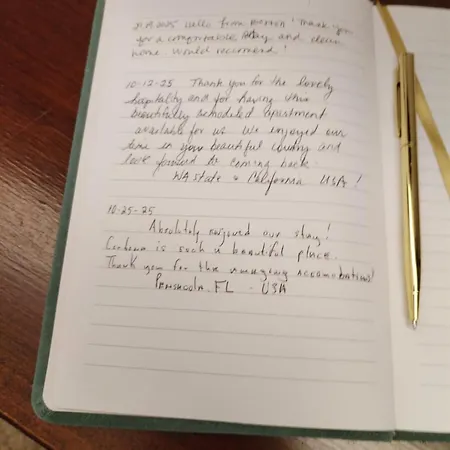 2025 Hello from Thank you
for a comfortable stay and clean
home would recomend!
10-12-25 Thank you for the lovely
hospitality and for having this
beautifully apartment
available for us. We enjoyed our
time in your beautiful country and
look forward to coming back.
WA State & California USA!
10-25-25
Absolutely enjoyed our stay!
Cordova is such a beautiful place.
Thank you for the amazing accomodations!
Pensacola, FL - USA